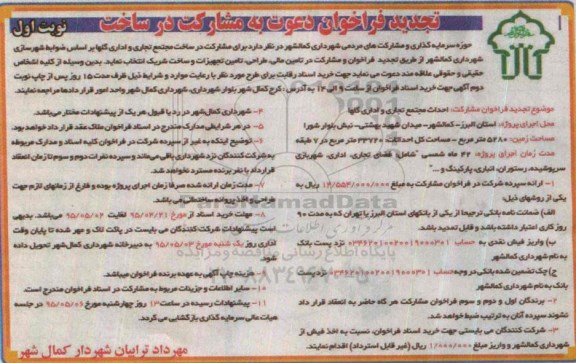 تجدید فراخوان دعوت به مشارکت در ساخت
نوبت اول
حوزه سرمایه گذاری و مشارکت های مردمی شهرداری کمالشهر در نظر دارد برای مشارکت در ساخت مجتمع تجاری و اداری گلها بر اساس ضوابط شهرسازی
شهرداری کمالشهر از طریق تجدید فراخوان و مشارکت در تامین مالی، طراحی، تامین تجهیزات و ساخت شریک انتخاب نماید. بدین وسیله از کلیه اشخاص
حقیقی و حقوقی علاقه مند دعوت می نماید جهت خرید اسناد رقابت برای طرح مورد نظر با رعایت موارد و شرایط ذیل ظرف مدت ۱۵ روز پس از چاپ نوبت
دوم آگهی جهت خرید اسناد فراخوان از ساعت ۹ الی ۱۴ به آدرس: کرج کمال شهر بلوار شهرداری، شهرداری کمال شهر واحد امور قرار دادها مراجعه نمایند.
موضوع تجدید فراخوان مشارکت: احداث مجتمع تجاری و اداری گلها
محل اجرای پروژه: استان البرز- کمالشهر- میدان شهید بهشتی- نبش بلوار شورا
مساحت زمین: ۵۲۸۰ متر مربع - مساحت کل احداثات ۳۳۷۶۰ متر مربع در ۷ طبقه
مدت زمان اجرای پروژه: ۴۲ ماه شمسی "شامل: فضای تجاری، اداری، شهربازی
سرپوشیده، رستوران، انباری، پارکینگ و ..."
۱- ارائه سپرده شرکت در فراخوان مشارکت به مبلغ ریال به
یکی از روشهای ذیل:
الف) ضمانت نامه بانکی ترجیحا از یکی از بانکهای استان البرز یا تهران که به مدت ۹۰
روز کاری اعتبار داشته باشد و قابل تمدید باشد.
ب) واریز فیش نقدی به حساب نزد پست بانک
به نام شهرداری کمالشهر
ج) چک تضمین شده بانکی در وجه حساب نزد پست
بانک به نام شهرداری کمالشهر
۲- برندگان اول و دوم و سوم فراخوان مشارکت هر گاه حاضر به انعقاد قرار داد
نشوند سپرده آنان به ترتیب ضبط خواهد شد.
۳- شرکت کنندگان می بایستی جهت خرید اسناد فراخوان، نسبت به اخذ فیش از
شهرداری کمالشهر و واریز مبلغ ۱/۰۰۰/۰۰۰ ریال (غیر قابل استرداد) اقدام نمایند.
۴- شهرداری کمال‌شهر در رد یا قبول هر یک از پیشنهادات مختار می‌باشد.
۵- در هر شرایطی مدارک مندرج در اسناد فراخوان ملاک عقد قرار داد خواهد بود.
۶- توضیح اینکه به غیر از سپرده شرکت در فراخوان کلیه اسناد و مدارک مربوطه
به شرکت کنندگان نزد شهرداری باقی می‌ماند و سپرده نفرات دوم و سوم تا زمان انعقاد
قرارداد با نفر برنده مسترد نخواهد شد.
۷- مدت زمان ارائه شده صرفا زمان اجرای پروژه بوده و فارغ از زمانهای لازم جهت
۸- مهلت خرید اسناد از مورخ ۹۵/۰۴/۲۱ لغایت ۹۵/۰۵/۰۲ می‌باشد. بدیهی
است پیشنهادات شرکت کنندگان می بایست در پاکت لاک و مهر شده تا پایان وقت
اداری روز یک شنبه مورخ ۹۵/۰۵/۰۳ به دبیرخانه شهرداری کمال‌شهر تحویل داده
شود.
هزینه چاپ آگهی به عهده برنده فراخوان میباشد.
۱۰- سایر اطلاعات و جزئیات مربوط به مشارکت در اسناد فراخوان مندرج است.
۱۱- پیشنهادات رسیده در ساعت ۱۳ روز چهارشنبه مورخ ۹۵/۰۵/۰۶ در جلسه
هیات عالی سرمایه گذاری بازگشایی می گردد.
مهرداد ترابیان شهردار کمال شهر